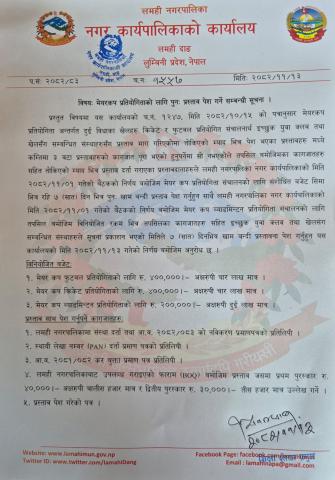 लमही नगरपालिका
नगर कार्यपालिकाको कार्यालय
लमही दाङ
लुम्बिनी प्रदेश, नेपाल
प.सं: २०८२/८३ च.न. १२५७ मिति: २०८२/११/१३
विषय: मेयरकप प्रतियोगिताको लागि पुन: प्रस्ताव पेश गर्ने सम्बन्धी सूचना ।
प्रस्तुत विषयमा यस कार्यालयको च.न. १२४७, मिति २०८२/१०/१५ को पत्रानुसार मेयरकप
प्रतियोगिता अन्तर्गत दुई विधाका खेलहरु क्रिकेट र फुटबल प्रतियोगिता संचालनार्थ इच्छुक युवा क्लब तथा
खेलसँग सम्बन्धित संस्थाहरुसँग प्रस्ताव माग गरिएकोमा तोकिएको म्याद भित्र पेश भएका प्रस्तावहरु मध्ये
कम्तिमा ३ वटा प्रस्तावहरुको कागजात पूरा भएको हुनुपर्नेमा सो नभएकोले तपसिल वमोजिमका कागजातहरु
सहित तोकिएको म्याद भित्र प्रस्ताव दर्ता गराएका प्रस्तावदाताहरुले लमही नगर कार्यपालिकाको मिति
२०८२/११/०१ गतेको बैठकको निर्णय वमोजिम मेयर कप प्रतियोगिता संचालनको लागि संशोधित बजेट सिमा
भित्र रही ७ (सात) दिन भित्र पुन: खाम बन्दी प्रस्ताव पेश गर्नुहुन साथै लमही नगरपालिका नगर कार्यपालिकाको
मिति २०८२/११/०१ गतेको बैठकको निर्णय वमोजिम मेयर कप ब्याडमिन्टन प्रतियोगिता संचालनको लागि
तपसिल वमोजिम विनियोजित रकम भित्र तपसिलका कागजातहरु सहित इच्छुक युवा क्लब तथा खेलसंग
सम्बन्धित संस्थाहरुले सूचना प्रकाशन भएको मितिले ७ (सात) दिनभित्र खाम बन्दी प्रस्तावना पेश गर्नुहुन यस
कार्यालयको मिति २०८२/११/१३ गतेको निर्णय वमोजिम अनुरोध छ ।
विनियोजित बजेट:
१. मेयर कप फुटबल प्रतियोगिताको लागि रु. ४००,०००।- अक्षरुपी चार लाख मात्र ।
२. मेयर कप क्रिकेट प्रतियोगिताको लागि रु. ४००,०००।- अक्षरुपी चार लाख मात्र ।
३. मेयर कप ब्याडमिन्टन प्रतियोगिताको लागि रु. २००,०००।- अक्षरुपी दुई लाख मात्र ।
प्रस्ताव साथ पेश गर्नुपर्ने कागजातहरु:
१. लमही नगरपालिकामा संस्था दर्ता तथा आ.व. २०८२/०८३ को नविकरण प्रमाणपत्रको प्रतिलिपी ।
२. स्थायी लेखा नम्बर (PAN) दर्ता प्रमाण पत्रको प्रतिलिपी ।
३. आ.व. २०८१/०८२ कर चुक्ता प्रमाण पत्र प्रतिलिपी ।
४. लमही नगरपालिकाबाट उपलब्ध गराइएको फाराम (BOQ) वमोजिम प्रस्ताव जसमा प्रथम पुरस्कार रु.
४०,०००/- अक्षरुपी चालीस हजार मात्र र द्वितीय पुरस्कार रु. ३०,०००/- तीस हजार मात्र उल्लेख गर्ने ।
५. प्रस्ताव पेश गरेको पत्र ।
२०८२/११/१३
Website: www.lamahimun.gov.np
Twitter ID: www.twitter.com/lamahiDang
Email: lamahinapa@gmail.com